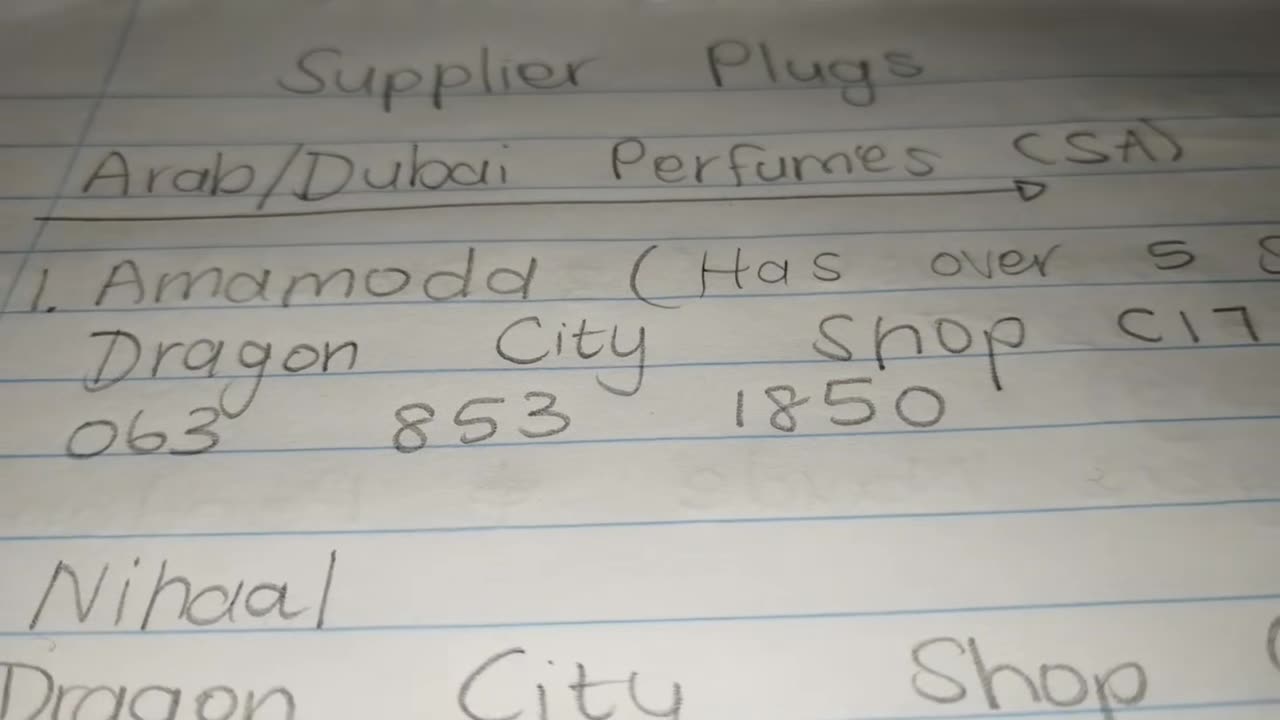 Supplier Plugs
Arab/Dubai Perfumes (SA)
1. Amamodd (Has over 5
Dragon City Shop C17
063 853 1850
Nihaal
Dragon City Shop